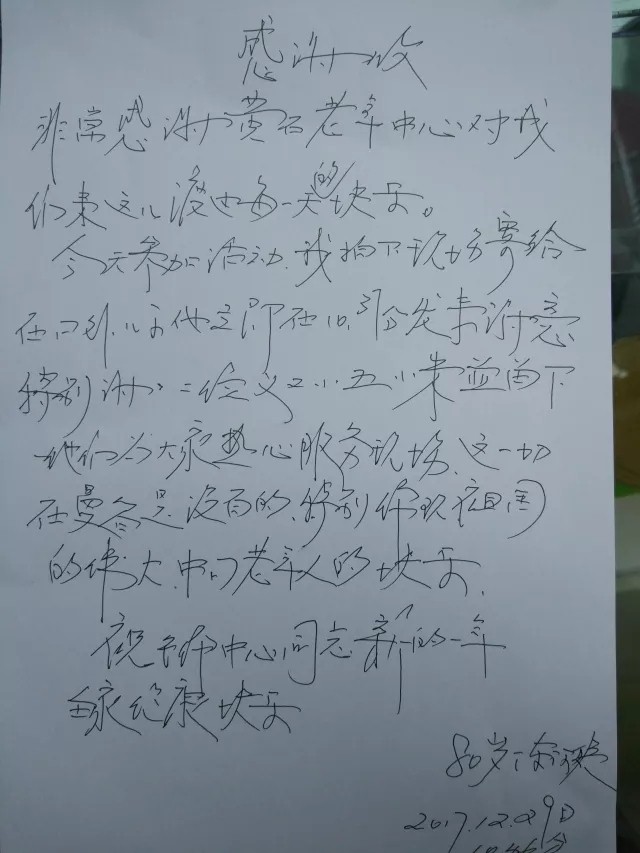 感谢收
非常感谢黄石老年中心对我
们来这儿渡过每一天的快乐。
今天参加活动.我拍下现场寄给
在口外儿子他立即在10.31分发来谢意
特别谢义工小五小朱并留下
他们为大家热心服务现场.这一切
在曼谷是没有的.特别体现祖国
的伟大.中口老年人的快乐.
祝中心同志新的一年
全家健康快乐
80岁
2017.12.29日
10.46分